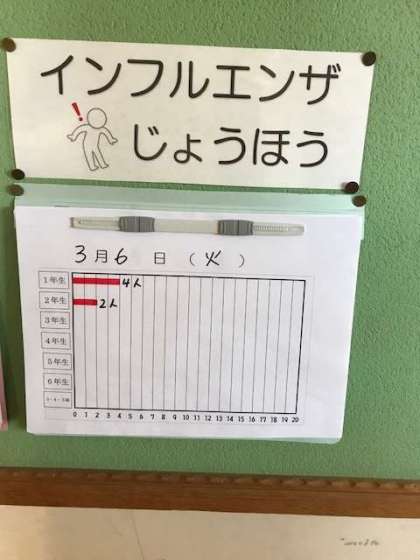 インフルエンザ
!
じょうほう
3月6日（火）
1年生 4人
2年生 2人
3年生
4年生
5年生
6年生
0 1 2 3 4 5 6 7 8 9 10 11 12 13 14 15 16 17 18 19 20